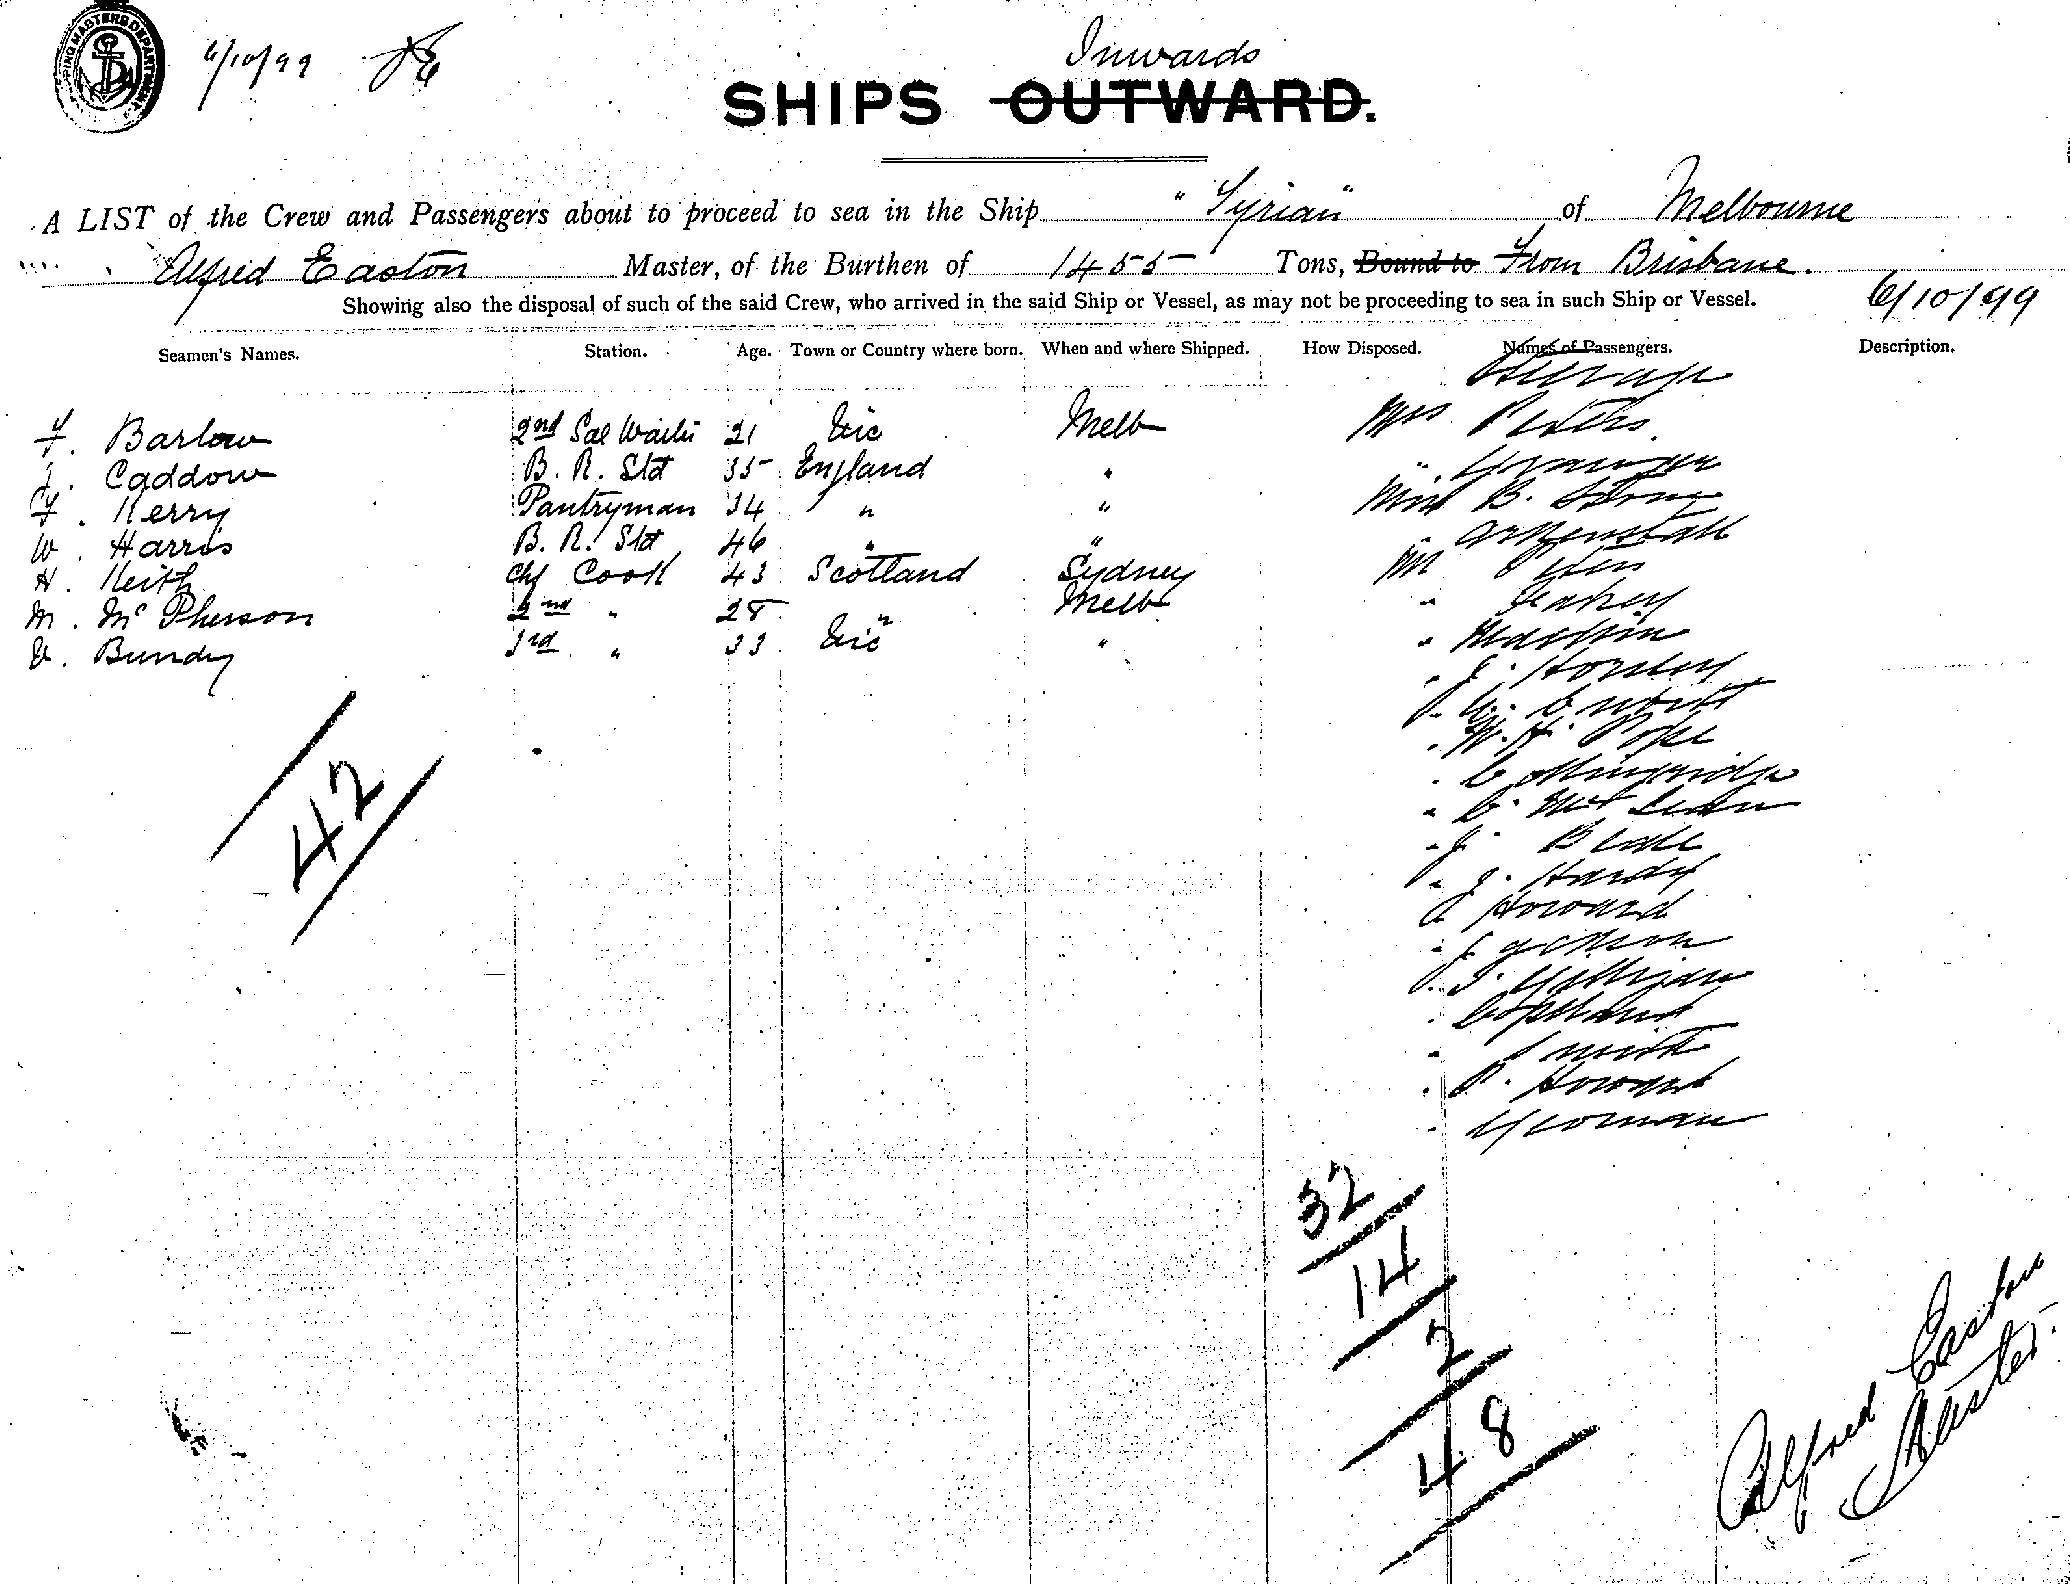 SHIPPING MASTERS DEPARTMENT
6/10/99
Inwards
SHIPS OUTWARD.
A LIST of the Crew and Passengers about to proceed to sea in the Ship "Syrian" of Melbourne
Alfred Easton Master, of the Burthen of 1455 Tons, Bound to From Brisbane.
Showing also the disposal of such of the said Crew, who arrived in the said Ship or Vessel, as may not be proceeding to sea in such Ship or Vessel. 6/10/99
Seamen's Names. Station. Age. Town or Country where born. When and where Shipped. How Disposed. Names of Passengers. Description.
Steerage
F. Barlow 2nd Sal Waiter 21 Vic Melb Mrs Peters
J. Caddow B. R. Std 35 England " "
F. Kerry Pantryman 34 " " Miss B. Strong
W. Harris B. R. Std 46 " "
H. Keith Chf Cook 43 Scotland Sydney Mr
M. McPherson 2nd " 28 " Melb "
V. Bundy 3rd " 33 Vic " "
" J. Horsley
" W. H. Pope
" Collingridge
" C. McLean
" J. Beale
" J. Hardy
Howard
" J. Jackson
" Copeland
" Smith
" R. Howard
" Yeoman
42
32
14
2
48
Alfred Easton
Master.